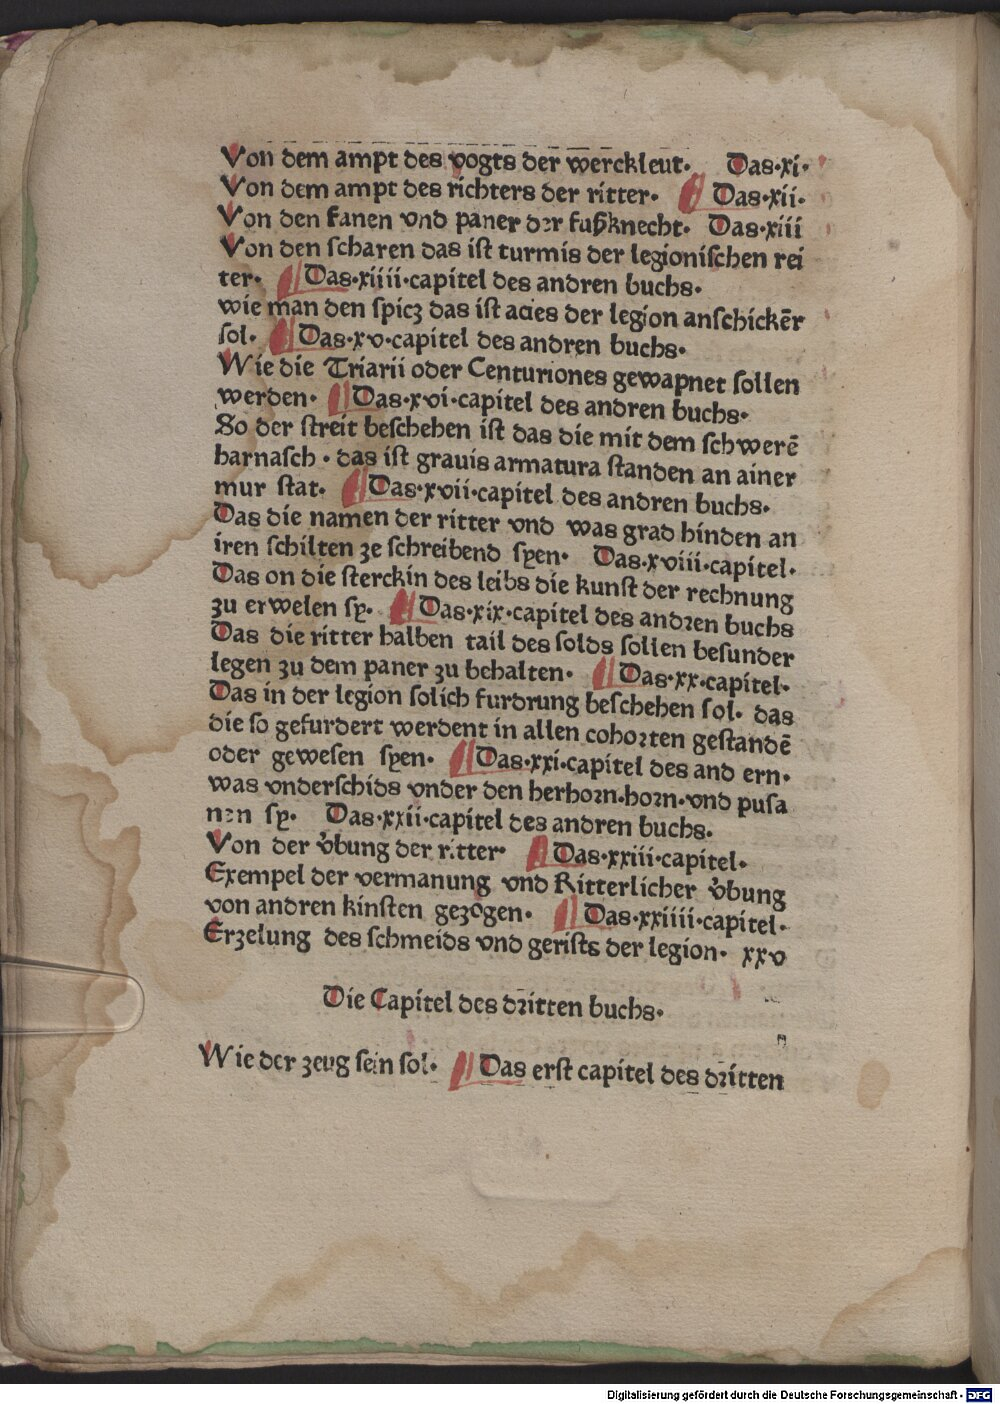 Von dem ampt des vogts der werckleut. Das·xi·
Von dem ampt des richters der ritter· Das·xii·
Von den fanen vnd paner der fußknecht· Das·xiii
Von den scharen das ist turmis der legionischen rei
ter· Das·xiiii·capitel des andren buchs·
wie man den spicz das ist acies der legion anschickēr
sol· Das·xv·capitel des andren buchs·
Wie die Triarii oder Centuriones gewapnet sollen
werden· Das·xvi·capitel des andren buchs·
So der streit beschehen ist das die mit dem schwerē
harnasch · das ist grauis armatura standen an ainer
mur stat· Das·xvii·capitel des andren buchs·
Das die namen der ritter vnd was grad hinden an
iren schilten ze schreibend syen· Das·xviii·capitel·
Das on die sterckin des leibs die kunst der rechnung
zu erwelen sy· Das·xix·capitel des andren buchs
Das die ritter halben tail des solds sollen besunder
legen zu dem paner zu behalten· Das·xx·capitel·
Das in der legion solich furdrung beschehen sol· das
die so gefurdert werdent in allen cohorten gestandē
oder gewesen syen· Das·xxi·capitel des and ern·
was vnderschids vnder den herhorn·horn·vnd pusa
nen sy· Das·xxii·capitel des andren buchs·
Von der v̊bung der ritter· Das·xxiii·capitel·
Exempel der vermanung vnd Ritterlicher v̊bung
von andren kinsten gezogen· Das·xxiiii·capitel·
Erzelung des schmeids vnd gerists der legion· xxv
Die Capitel des dritten buchs·
Wie der zeug sein sol· Das erst capitel des dritten
Digitalisierung gefördert durch die Deutsche Forschungsgemeinschaft - DFG